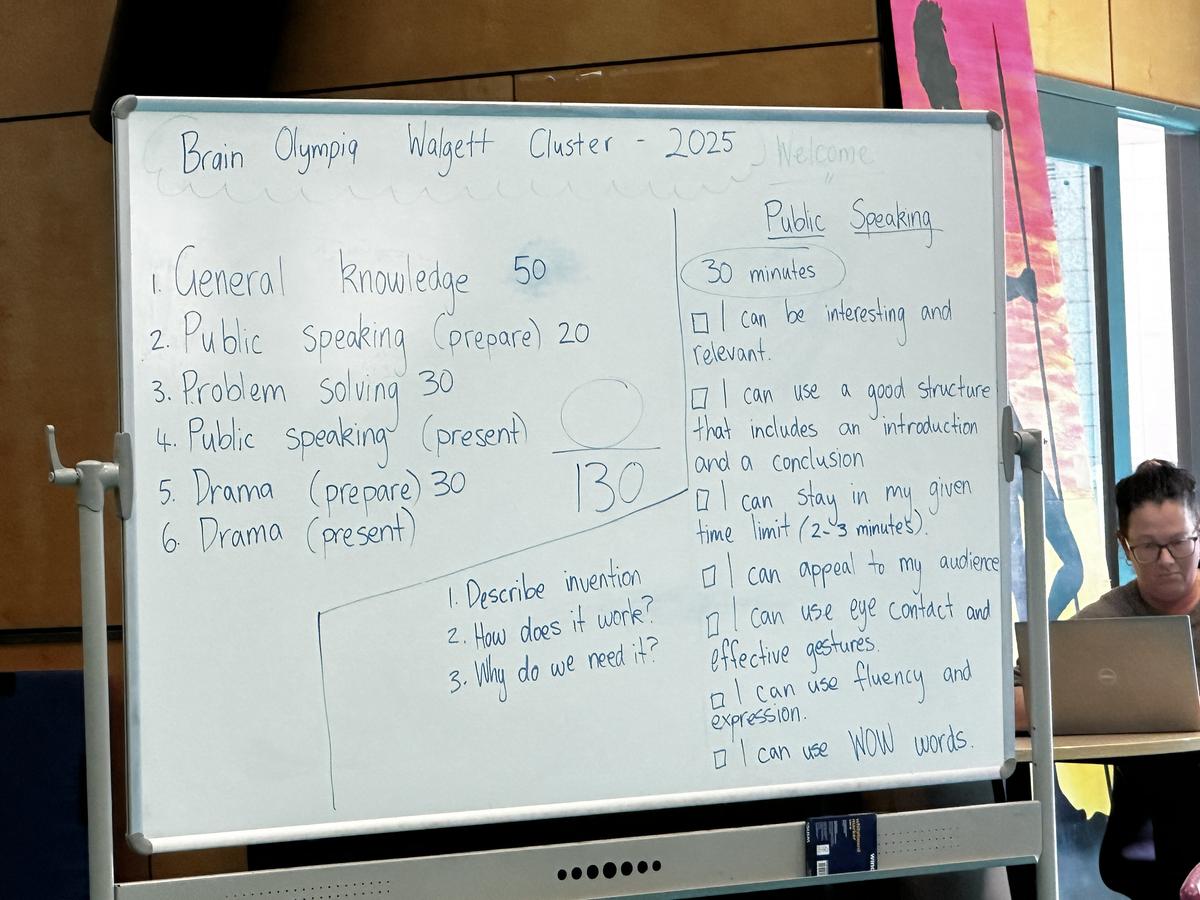 Brain Olympiq Walgett Cluster - 2025
Welcome
1. General knowledge 50
2. Public speaking (prepare) 20
3. Problem solving 30
4. Public speaking (present)
5. Drama (prepare) 30
6. Drama (present)
130
1. Describe invention
2. How does it work?
3. Why do we need it?
Public Speaking
30 minutes
I can be interesting and
relevant.
I can use a good structure
that includes an introduction
and a conclusion
I can stay in my given
time limit (2-3 minutes).
I can appeal to my audience
I can use eye contact and
effective gestures.
I can use fluency and
expression.
I can use WOW words.
DELL
whiteboard
marker